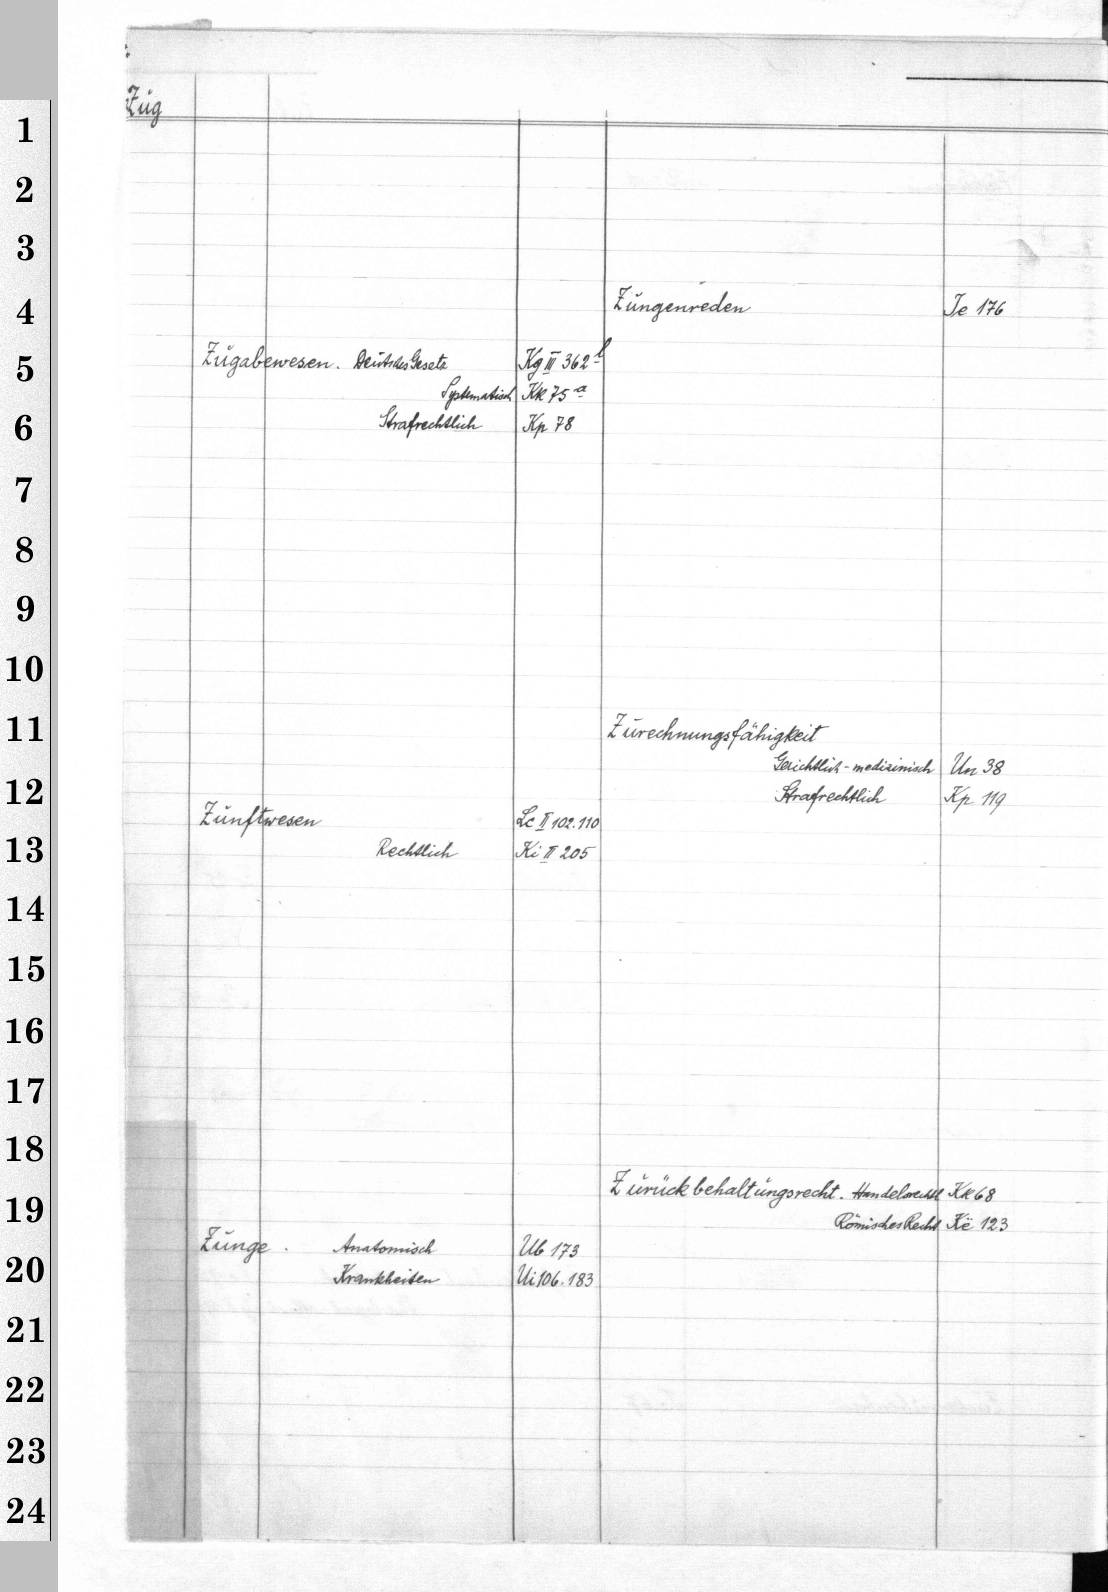 Zug
1
2
3
4
5
6
7
8
9
10
11
12
13
14
15
16
17
18
19
20
21
22
23
24
Zugabewesen. Deutsches Gesetz Kg III 362 b
Systematisch Kk 75 a
Strafrechtlich Kp 78
Zunftwesen Lc II 102.110
Rechtlich Ki II 205
Zunge. Anatomisch Ub 173
Krankheiten Ui 106.183
Zungenreden Te 176
Zurechnungsfähigkeit
Gerichtlich-medizinisch Un 38
Strafrechtlich Kp 119
Zurückbehaltungsrecht. Handelsrechtl Kk 68
Römisches Recht Ke 123